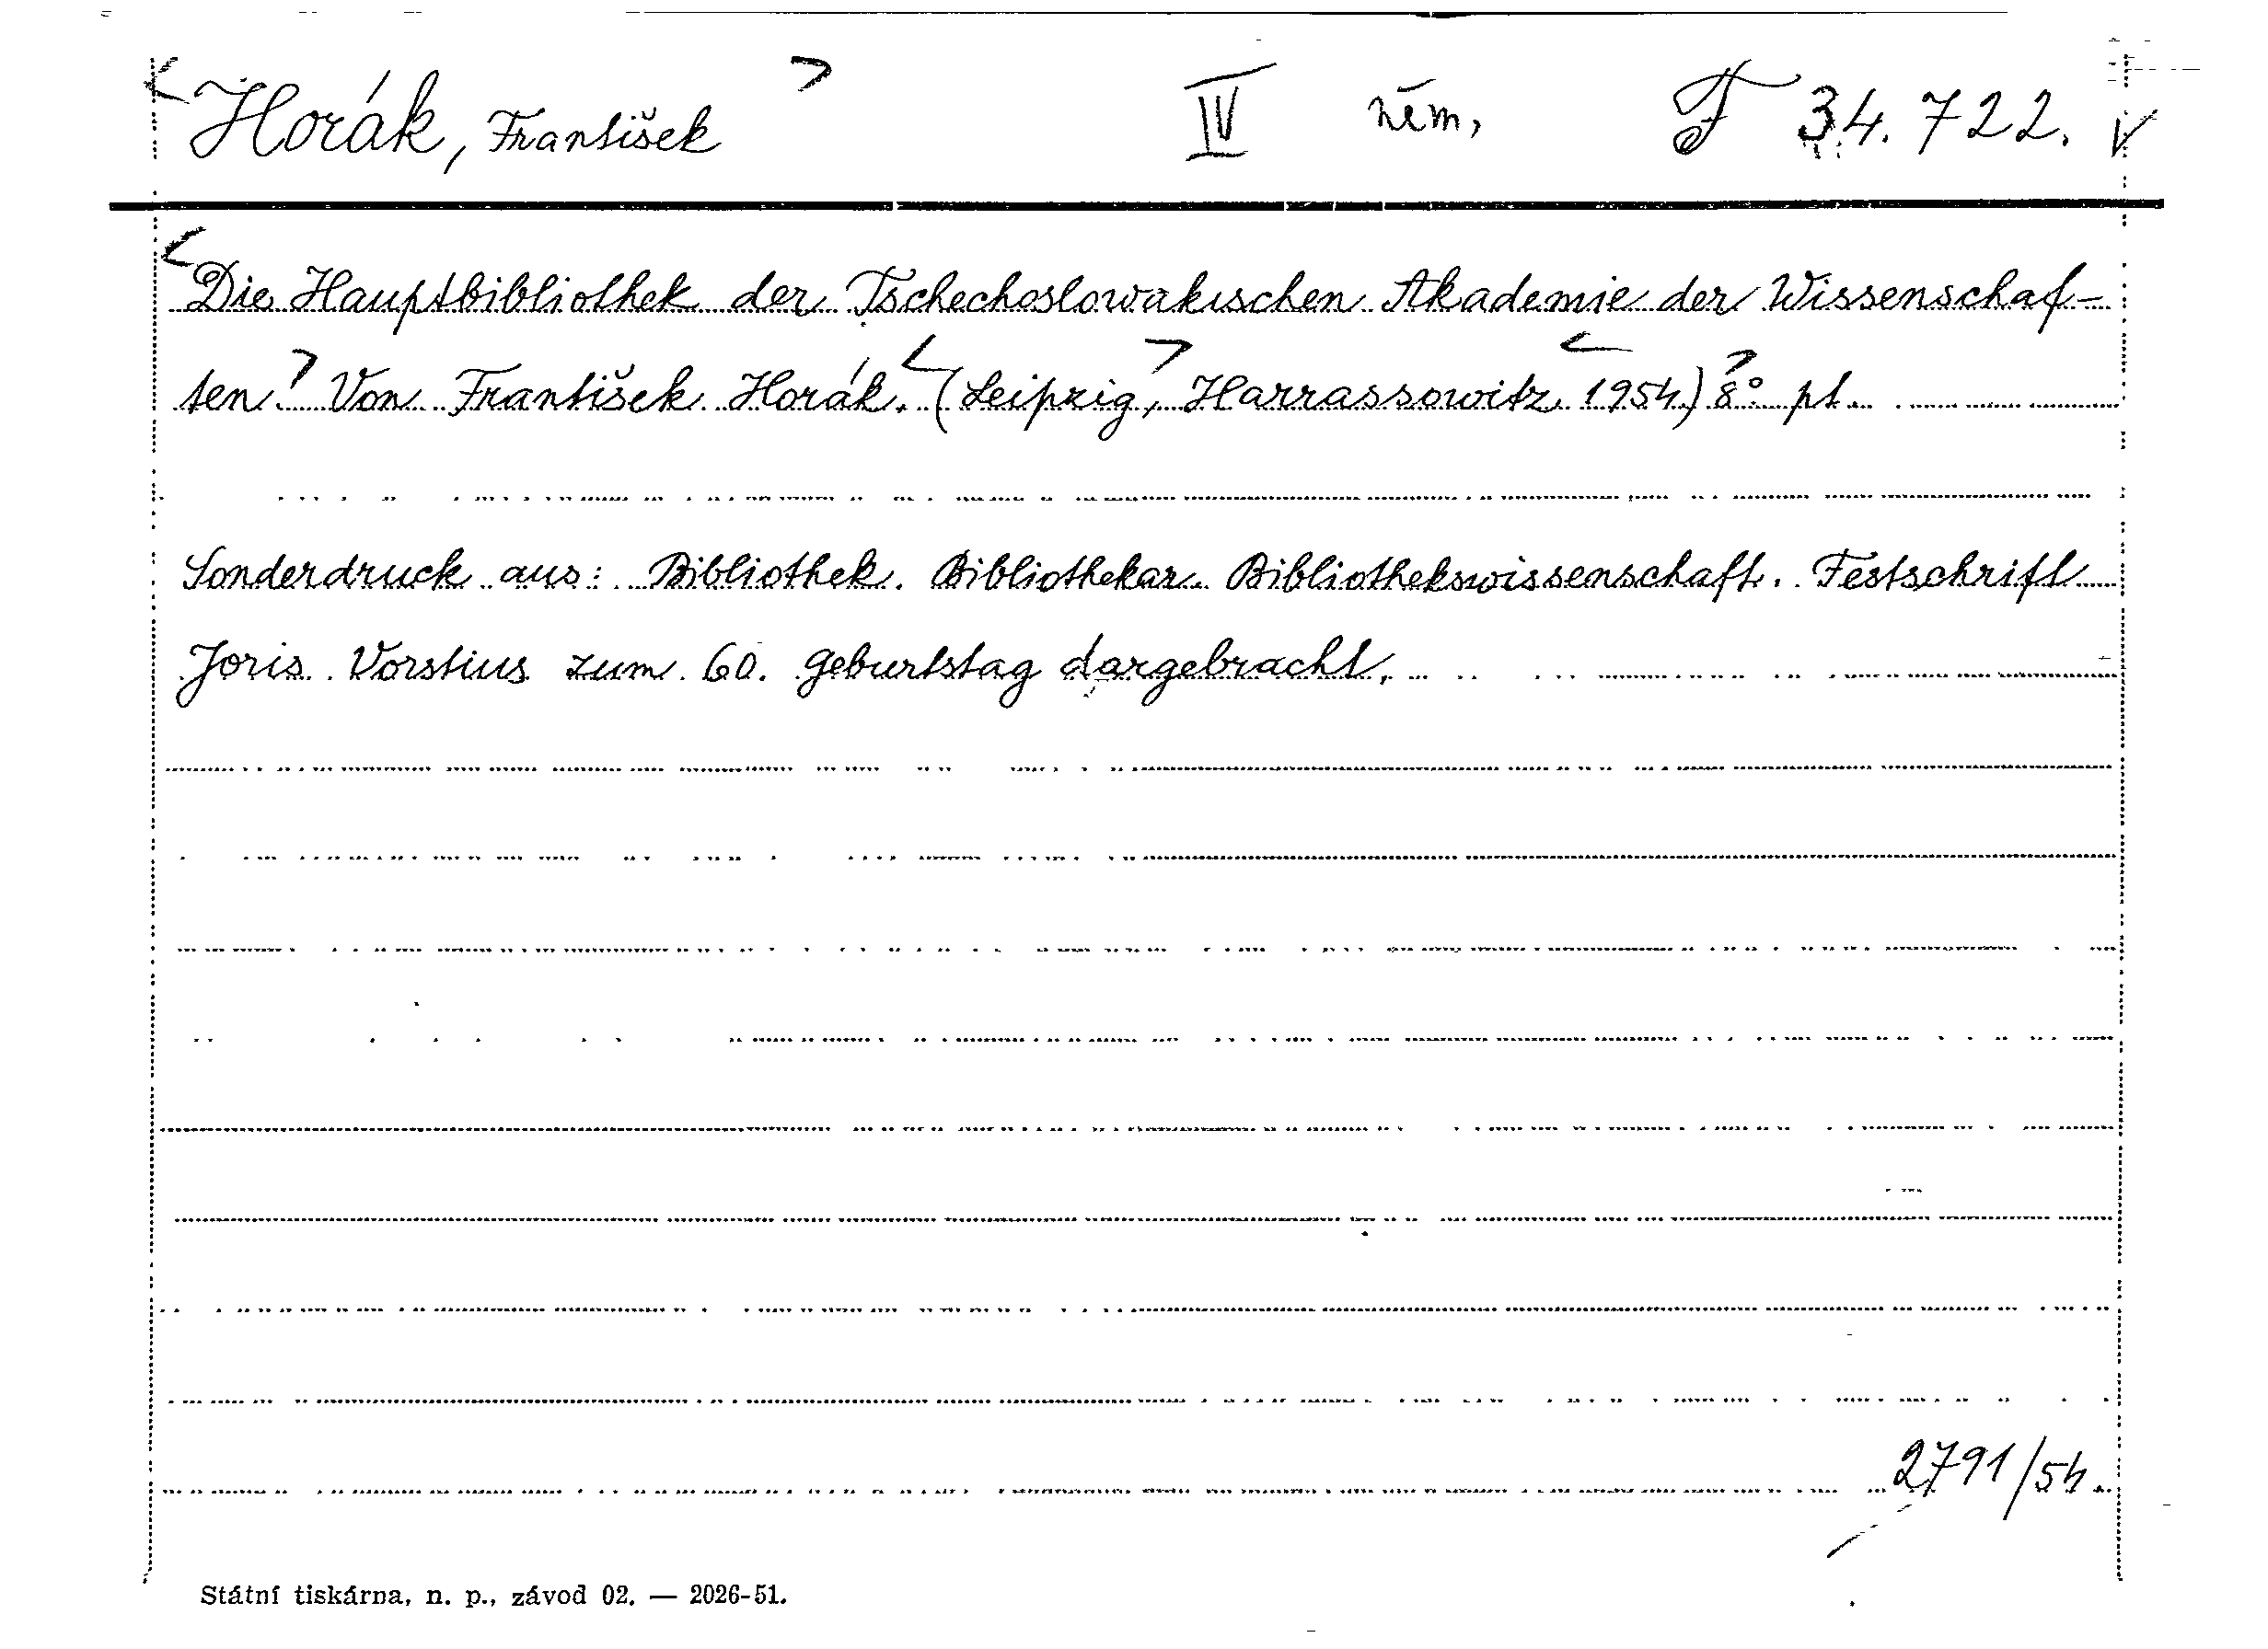 Horák, František IV něm, F 34.722. V
Die Hauptbibliothek der Tschechoslowakischen Akademie der Wissenschaf-
ten. Von František Horák. (Leipzig, Harrassowitz 1954.) 8° pl.
Sonderdruck aus: Bibliothek. Bibliothekar. Bibliothekswissenschaft. Festschrift
Joris Vorstius zum 60. Geburtstag dargebracht.
2791/54.
Státní tiskárna, n. p., závod 02. — 2026-51.